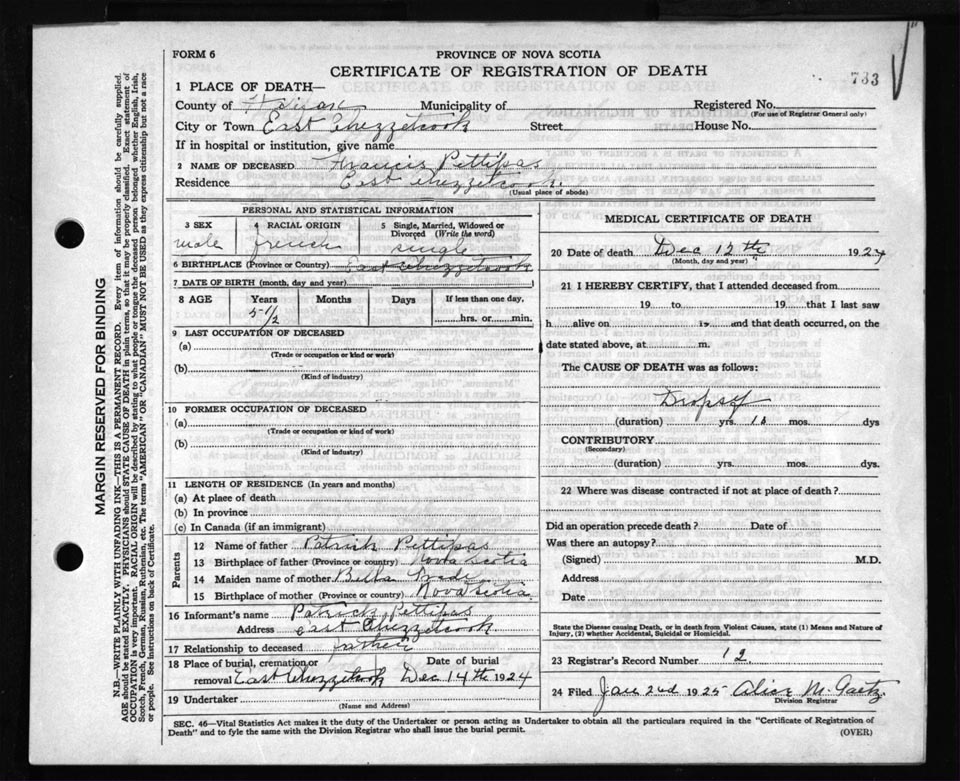 FORM 6
PROVINCE OF NOVA SCOTIA
CERTIFICATE OF REGISTRATION OF DEATH
733
1 PLACE OF DEATH—
County of Halifax Municipality of Registered No.
(For use of Registrar General only)
City or Town East Chezzetcook Street House No.
If in hospital or institution, give name
2 NAME OF DECEASED Francis Pettipas
Residence East Chezzetcook
(Usual place of abode)
PERSONAL AND STATISTICAL INFORMATION
3 SEX 4 RACIAL ORIGIN 5 Single, Married, Widowed or Divorced (Write the word)
male french single
6 BIRTHPLACE (Province or Country) East Chezzetcook
7 DATE OF BIRTH (month, day and year)
8 AGE Years Months Days If less than one day,
5 1/2 hrs. or min.
9 LAST OCCUPATION OF DECEASED
(a)
(Trade or occupation or kind or work)
(b)
(Kind of industry)
10 FORMER OCCUPATION OF DECEASED
(a)
(Trade or occupation or kind of work)
(b)
(Kind of industry)
11 LENGTH OF RESIDENCE (In years and months)
(a) At place of death
(b) In province
(c) In Canada (if an immigrant)
Parents
12 Name of father Patrick Pettipas
13 Birthplace of father (Province or country) Nova Scotia
14 Maiden name of mother Bella
15 Birthplace of mother (Province or country) Nova Scotia
16 Informant's name Patrick Pettipas
Address East Chezzetcook
17 Relationship to deceased father
18 Place of burial, cremation or removal East Chezzetcook Date of burial Dec 14th 1924
19 Undertaker
(Name and Address)
MEDICAL CERTIFICATE OF DEATH
20 Date of death Dec 12th 1924
(Month, day and year)
21 I HEREBY CERTIFY, that I attended deceased from
19 to 19 that I last saw
h alive on 19 and that death occurred, on the
date stated above, at m.
The CAUSE OF DEATH was as follows:
Dropsy
(duration) yrs. 10 mos. dys
CONTRIBUTORY
(Secondary)
(duration) yrs. mos. dys.
22 Where was disease contracted if not at place of death?
Did an operation precede death? Date of
Was there an autopsy?
(Signed) M.D.
Address
Date
State the Disease causing Death, or in death from Violent Causes, state (1) Means and Nature of
Injury, (2) whether Accidental, Suicidal or Homicidal.
23 Registrar's Record Number 12
24 Filed Jan 2nd 1925 Alice M. Gaetz
Division Registrar
SEC. 46—Vital Statistics Act makes it the duty of the Undertaker or person acting as Undertaker to obtain all the particulars required in the "Certificate of Registration of
Death" and to fyle the same with the Division Registrar who shall issue the burial permit.
(OVER)
MARGIN RESERVED FOR BINDING
N.B.—WRITE PLAINLY WITH UNFADING INK—THIS IS A PERMANENT RECORD. Every item of information should be carefully supplied.
AGE should be stated EXACTLY. PHYSICIANS should STATE CAUSE OF DEATH in plain terms, so that it may be properly classified. Exact statement of
OCCUPATION is very important. RACIAL ORIGIN will be described by stating to what people or tongue the deceased person belonged whether English, Irish,
Scotch, French, German, Russian, Ruthenian, etc. The terms "AMERICAN" OR "CANADIAN" MUST NOT BE USED as they express citizenship but not a race
or people. See instructions on back of Certificate.